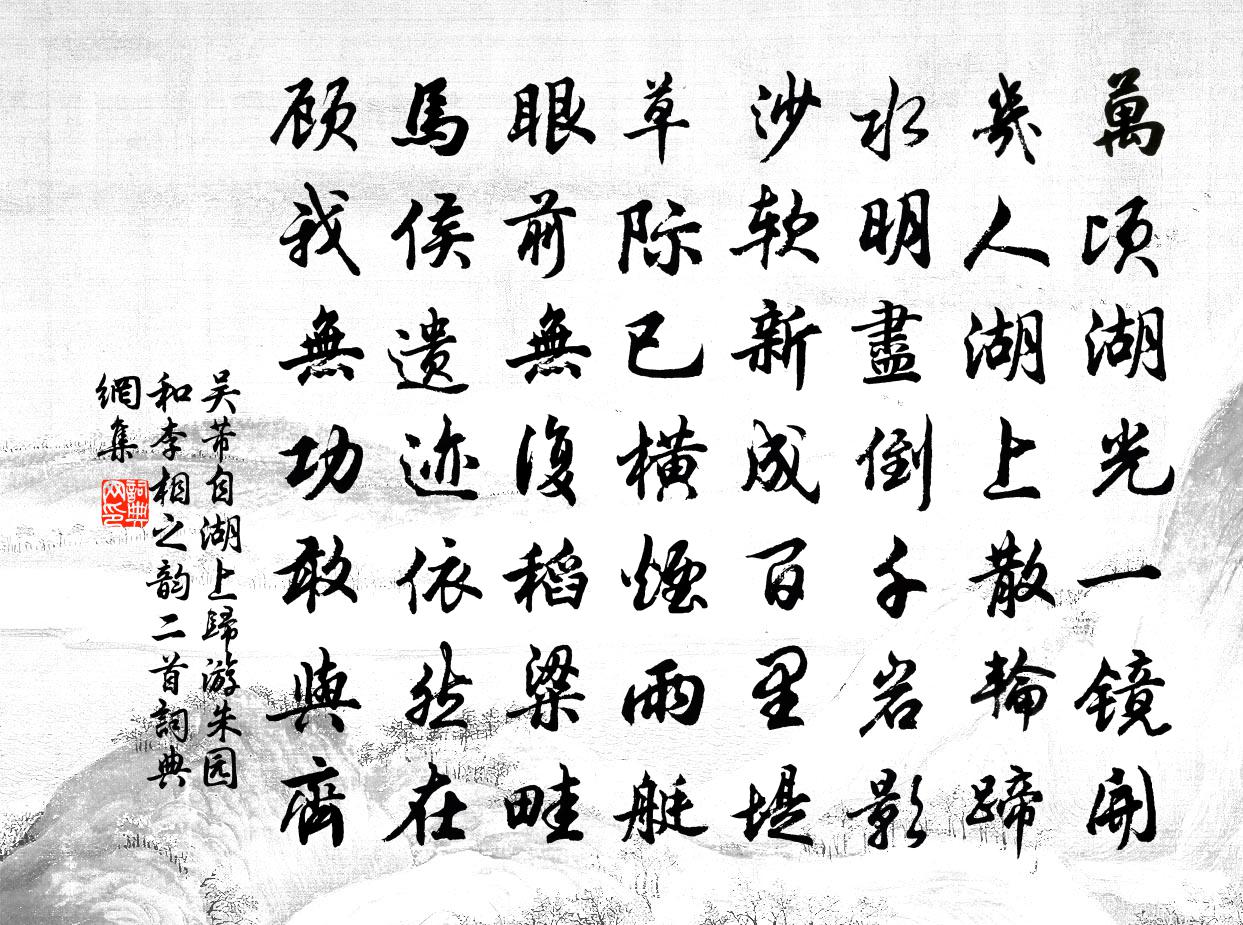 萬顷湖光一镜開
幾人湖上散輪蹄
水明盡倒千岩影
沙软新成百里堤
草际已横煙雨艇
眼前無復稻粱畦
馬侯遗迹依然在
顾我無功敢與齊
吴芾自湖上歸游朱园
和李相之韵二首詞典
網集
詞典
网印